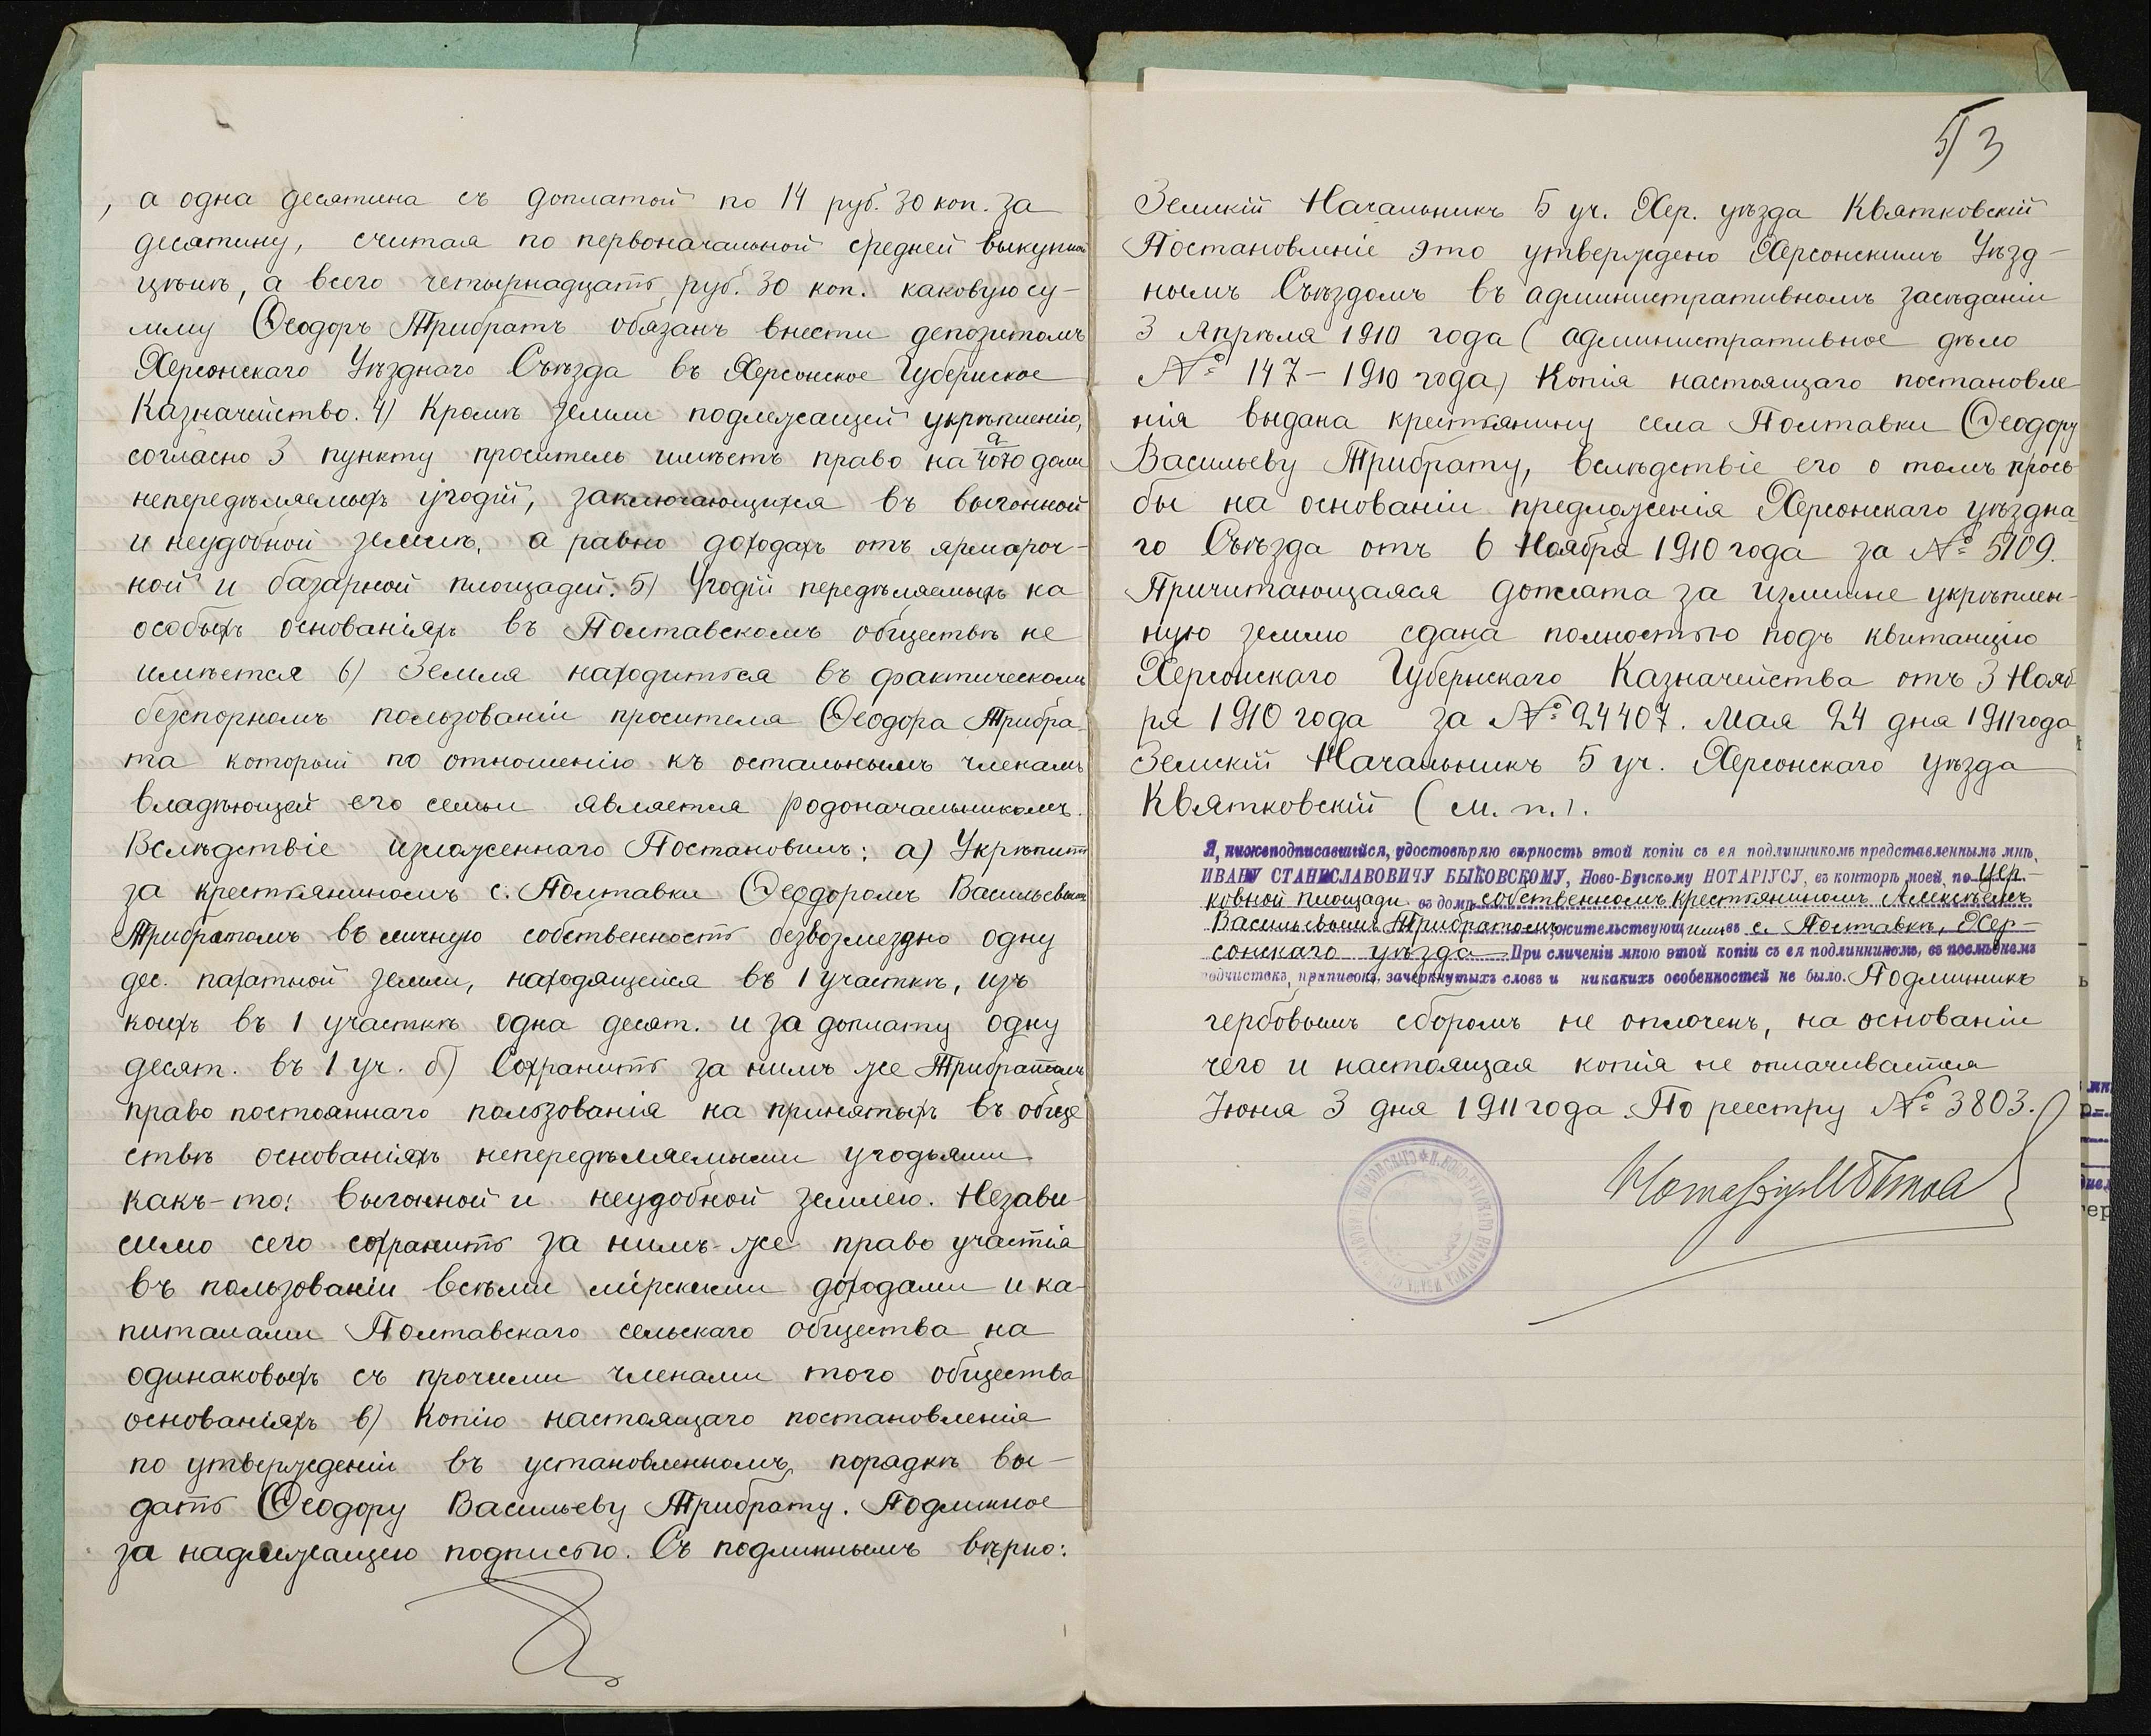 , а одна десятина съ доплатой по 14 руб. 30 коп. за
десятину, считая по первоначальной средней выкупной
цѣнѣ, а всего четырнадцать руб. 30 коп. каковую су-
мму Ѳеодоръ Трибратъ обязанъ внести депозитомъ
Херсонскаго Уѣзднаго Съѣзда въ Херсонское Губернское
Казначейство. 4) Кромѣ земли подлежащей укрѣпленію,
согласно 3 пункту проситель имѣетъ право на доли
непередѣляемыхъ угодій, заключающихся въ выгонной
и неудобной землѣ, а равно доходахъ отъ ярмароч-
ной и базарной площадей. 5) Угодій передѣляемыхъ на
особыхъ основаніяхъ въ Полтавскомъ обществѣ не
имѣется 6) Земля находиться въ фактическомъ
безспорномъ пользованіи просителя Ѳеодора Трибра-
та который по отношенію къ остальнымъ членамъ
владѣющей его семьи является родоначальникомъ.
Вслѣдствіе изложеннаго Постановилъ: а) Укрѣпить
за крестьяниномъ с. Полтавки Ѳеодоромъ Васильевымъ
Трибратомъ въ личную собственность безвозмездно одну
дес. пахатной земли, находящейся въ 1 участкѣ, изъ
коихъ въ 1 участкѣ одна десят. и за доплату одну
десят. въ 1 уч. б) Сохранить за нимъ же Трибратомъ
право постояннаго пользованія на принятыхъ въ обще
ствѣ основаніяхъ непередѣляемыми угодьями
какъ-то: выгонной и неудобной землею. Незави-
симо сего сохранить за нимъ-же право участія
въ пользованіи всѣми мірскими доходами и ка-
питалами Полтавскаго сельскаго общества на
одинаковыхъ съ прочими членами того общества
основаніяхъ в) Копію настоящаго постановленія
по утвержденіи въ установленномъ порядкѣ вы-
дать Ѳеодору Васильеву Трибрату. Подлинное
за надлежащею подписью. Съ подлиннымъ вѣрно:
3
Земскій Начальникъ 5 уч. Хер. уѣзда Квятковскій
Постановленіе это утверждено Херсонскимъ Уѣзд-
нымъ Съѣздомъ въ административномъ засѣданіи
3 Апрѣля 1910 года (административное дѣло
№ 147-1910 года) Копія настоящаго постановле
нія выдана крестьянину села Полтавки Ѳеодору
Васильеву Трибрату, вслѣдствіе его о томъ прось
бы на основаніи предложенія Херсонскаго уѣздна-
го Съѣзда отъ 6 Ноября 1910 года за № 5109.
Причитающаяся доплата за излишне укрѣплен-
ную землю сдана полностью подъ квитанцію
Херсонскаго Губернскаго Казначейства отъ 3 Нояб-
ря 1910 года за № 24407. Мая 24 дня 1911 года
Земскій Начальникъ 5 уч. Херсонскаго уѣзда
Квятковскій (м. п.).
Я, нижеподписавшійся, удостовѣряю вѣрность этой копіи съ ея подлинникомъ представленнымъ мнѣ,
ИВАНУ СТАНИСЛАВОВИЧУ БЫКОВСКОМУ, Ново-Бугскому НОТАРІУСУ, въ конторѣ моей, по Цер-
ковной площади въ домѣ собственномъ крестьяниномъ Алексѣемъ
Васильевымъ Трибратомъ, жительствующимъ въ с. Полтавкѣ, Хер-
сонскаго уѣзда При сличеніи мною этой копіи съ ея подлинникомъ, въ послѣднемъ
подчистокъ, приписокъ, зачеркнутыхъ словъ и никакихъ особенностей не было. Подлинникъ
гербовымъ сборомъ не оплоченъ, на основаніи
чего и настоящая копія не оплачивается
Іюня 3 дня 1911 года. По реестру № 3803.
Нотаріусъ